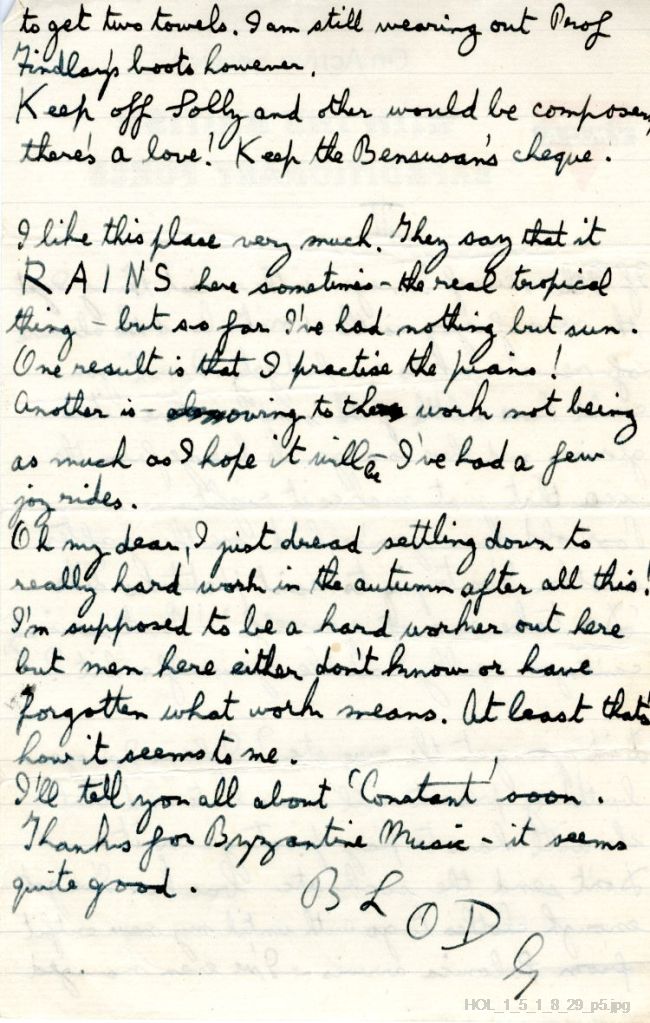 to get two towels. I am still wearing out Prof
Findlay's boots however.
Keep off Solly and other would be composers,
there's a love! Keep the Bensusan's cheque.
I like this place very much. They say that it
RAINS here sometimes - the real tropical
thing - but so far I've had nothing but sun.
One result is that I practise the piano!
Another is - owing to the work not being
as much as I hope it will be I've had a few
joy rides.
Oh my dear, I just dread settling down to
really hard work in the autumn after all this!
I'm supposed to be a hard worker out here
but men here either don't know or have
forgotten what work means. At least that's
how it seems to me.
I'll tell you all about 'Constant' soon.
Thanks for Byzantine Music - it seems
quite good.
BLODG
HOL_1_5_1_8_29_p5.jpg